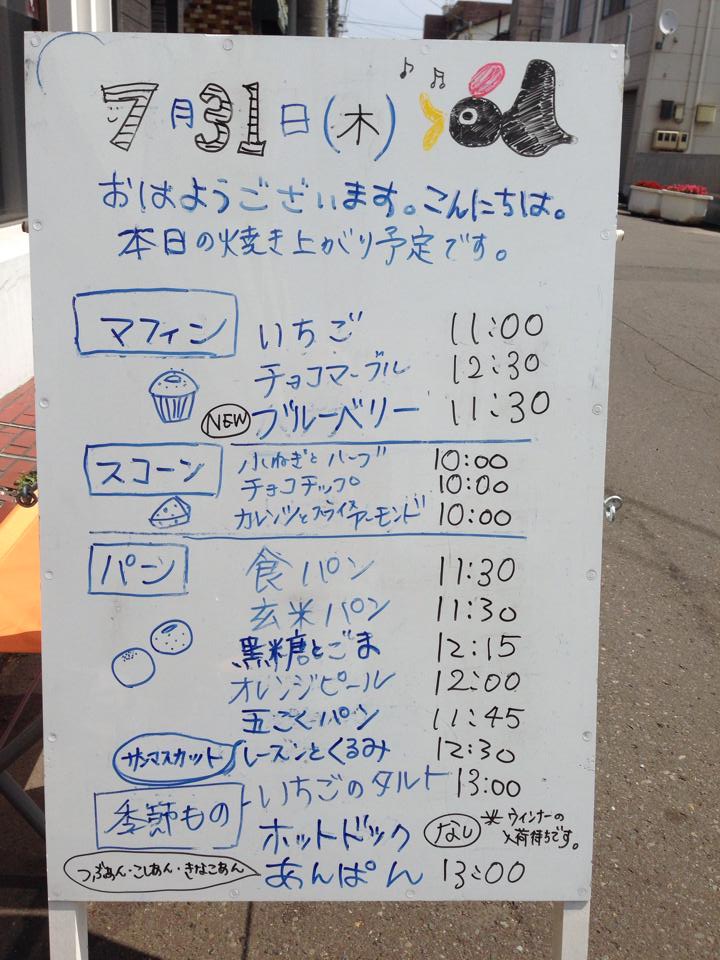 7月31日(木)
おはようございます。こんにちは。
本日の焼き上がり予定です。
マフィン いちご 11:00
チョコマーブル 12:30
NEW ブルーベリー 11:30
スコーン 小ねぎとハーブ 10:00
チョコチップ 10:00
カレンツとスライスアーモンド 10:00
パン 食パン 11:30
玄米パン 11:30
黒糖とごま 12:15
オレンジピール 12:00
五こくパン 11:45
サンマスカット レーズンとくるみ 12:30
季節もの いちごのタルト 13:00
ホットドック なし ※ウィンナーの入荷待ちです。
つぶあん・こしあん・きなこあん あんぱん 13:00